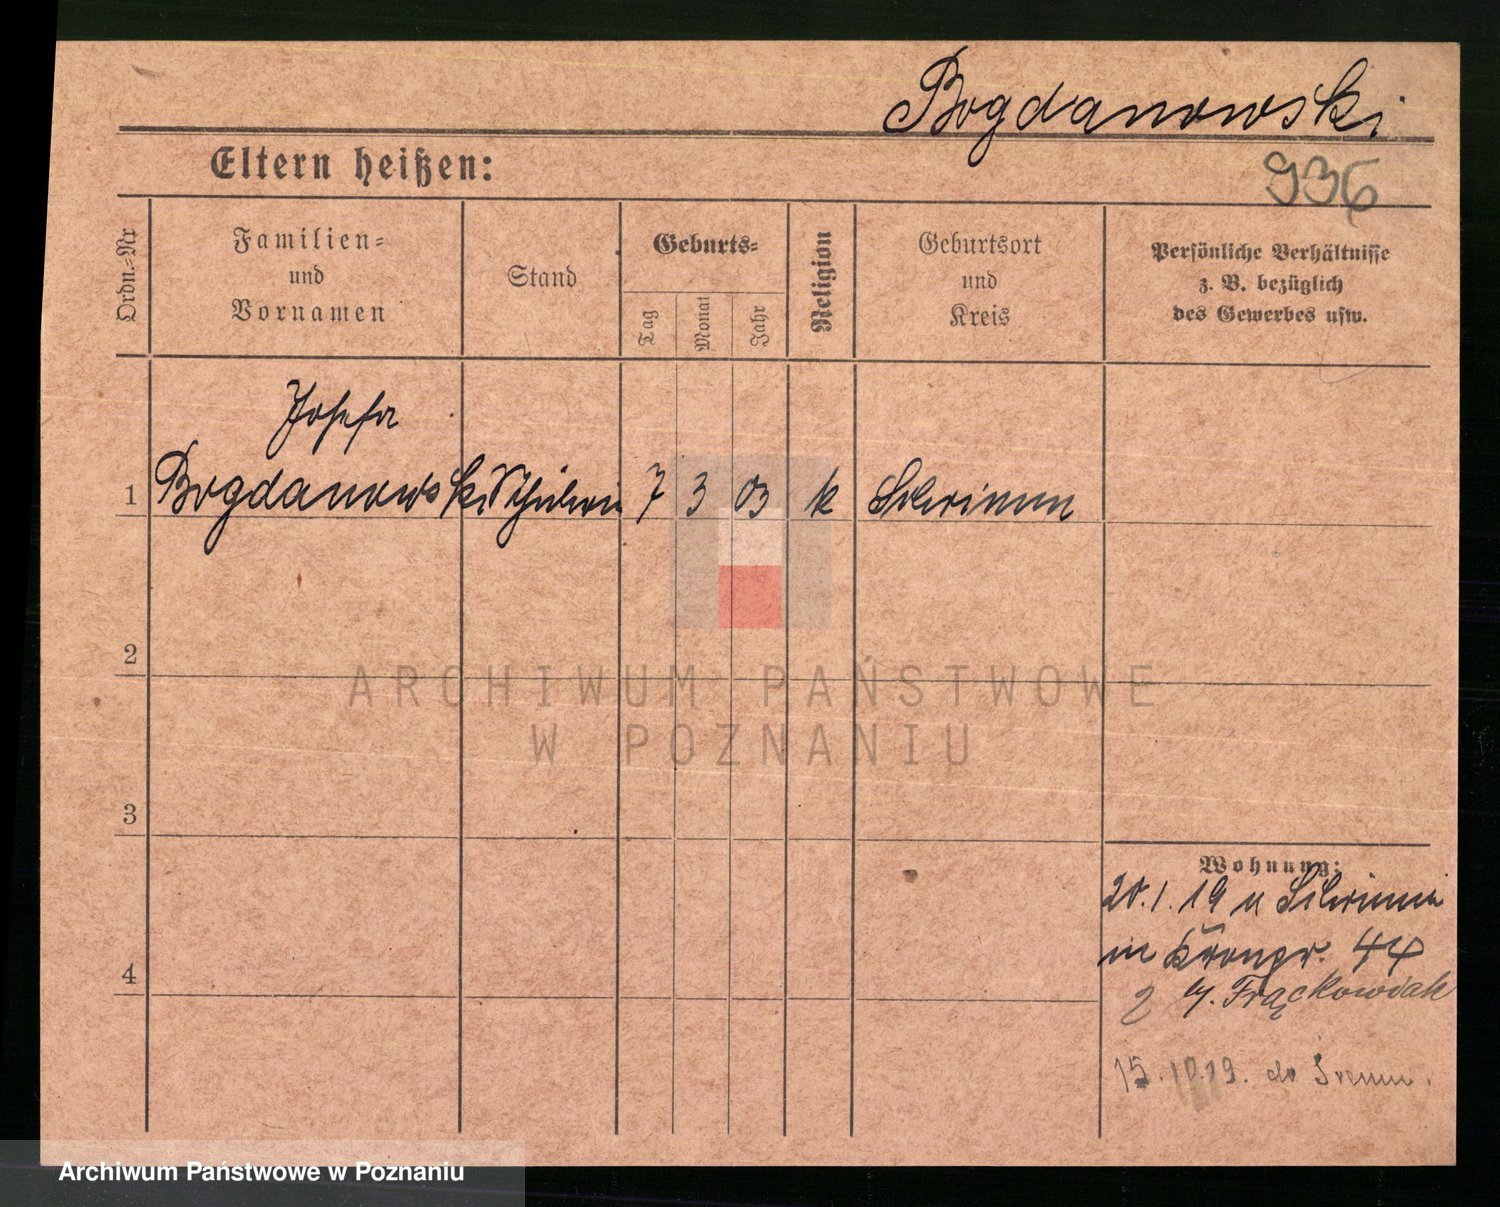 Bogdanowski
936
Eltern heißen:
Ordn.-Nr
Familien-
und
Vornamen
Stand
Geburts-
Tag
Monat
Jahr
Religion
Geburtsort
und
Kreis
Persönliche Verhältnisse
z. B. bezüglich
des Gewerbes usw.
Josefa
1 Bogdanowski Schülerin 7 3 03 k
2
3
Wohnung:
20.1.19
in Kronpr. 44
4
b/. Frąckowiak
15. 19. do Śremu.
ARCHIWUM PAŃSTWOWE
W POZNANIU
Archiwum Państwowe w Poznaniu